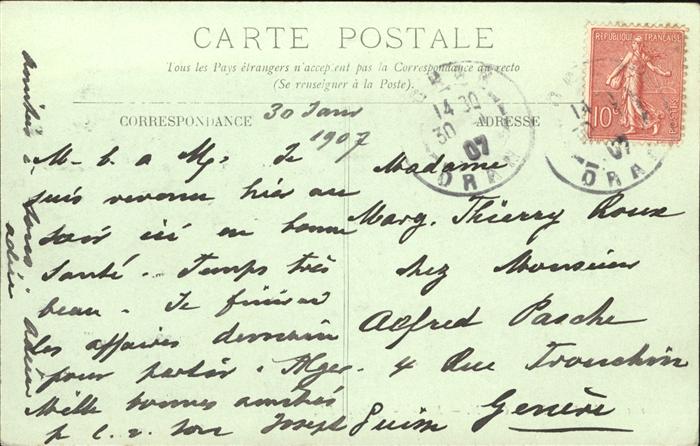 CARTE POSTALE
Tous les Pays étrangers n'acceptent pas la Correspondance au recto
(Se renseigner à la Poste).
CORRESPONDANCE
30 Janv
1907
M- b. a M. Je
suis revenu hier au
soir ici en bonne
Santé. Temps très
beau. Je finirai
les affaires demain
pour partir. Alger.
Mille bonnes amitiés
Joseph
amitiés à tous
adieu
ADRESSE
Madame
Marg. Thierry Roux
chez Monsieur
Alfred Pasche
4 Rue Tronchin
Genève
Suisse
REPUBLIQUE FRANÇAISE
10
POSTES
14 30
30
07
ORAN
07
ORAN